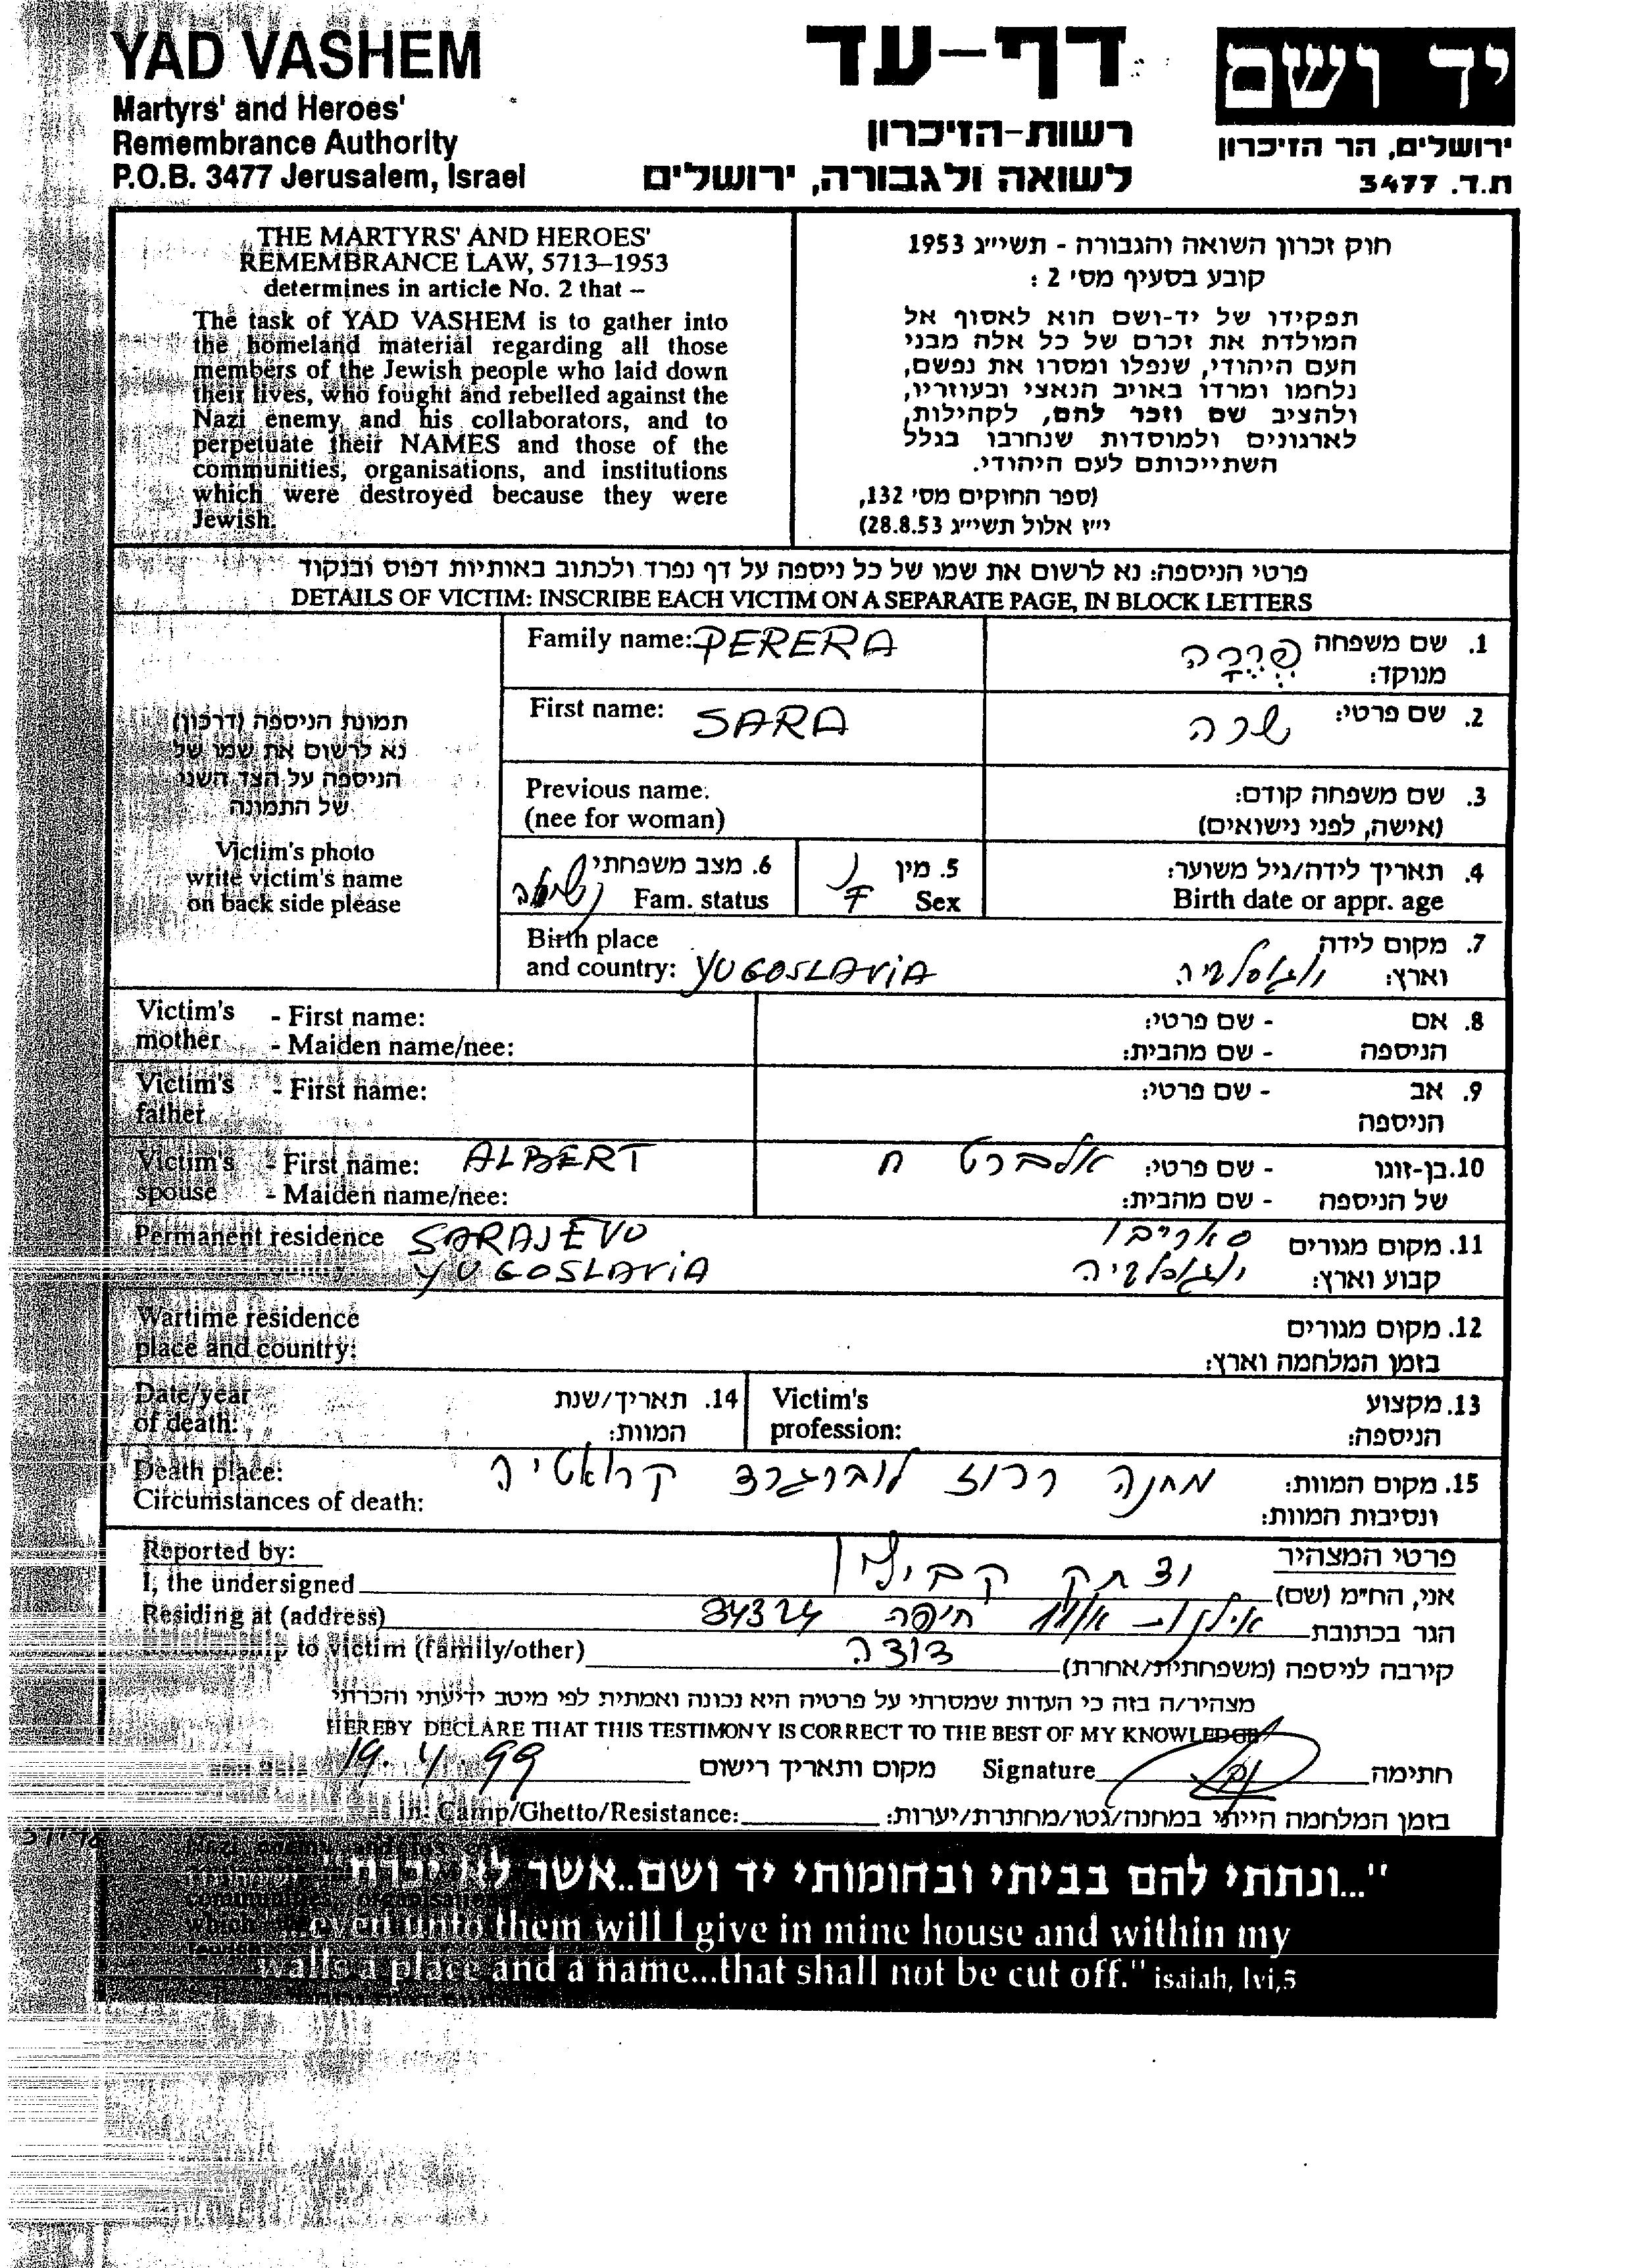 YAD VASHEM
Martyrs' and Heroes'
Remembrance Authority
P.O.B. 3477 Jerusalem, Israel
דף-עד
רשות-הזיכרון
לשואה ולגבורה, ירושלים
יד ושם
ירושלים, הר הזיכרון
ת.ד. 3477
THE MARTYRS' AND HEROES'
REMEMBRANCE LAW, 5713–1953
determines in article No. 2 that –
The task of YAD VASHEM is to gather into
the homeland material regarding all those
members of the Jewish people who laid down
their lives, who fought and rebelled against the
Nazi enemy and his collaborators, and to
perpetuate their NAMES and those of the
communities, organisations, and institutions
which were destroyed because they were
Jewish.
חוק זכרון השואה והגבורה - תשי״ג 1953
קובע בסעיף מס׳ 2 :
תפקידו של יד-ושם הוא לאסוף אל
המולדת את זכרם של כל אלה מבני
העם היהודי, שנפלו ומסרו את נפשם,
נלחמו ומרדו באויב הנאצי ובעוזריו,
ולהציב שם וזכר להם, לקהילות,
לארגונים ולמוסדות שנחרבו בגלל
השתייכותם לעם היהודי.
(ספר החוקים מס׳ 132,
י״ז אלול תשי״ג 28.8.53)
פרטי הניספה: נא לרשום את שמו של כל ניספה על דף נפרד ולכתוב באותיות דפוס ובנקוד
DETAILS OF VICTIM: INSCRIBE EACH VICTIM ON A SEPARATE PAGE, IN BLOCK LETTERS
תמונת הניספה (דרכון)
נא לרשום את שמו של
הניספה על הצד השני
של התמונה
Victim's photo
write victim's name
on back side please
Family name: PERERA
1. שם משפחה פררה
מנוקד:
First name: SARA
2. שם פרטי: שרה
Previous name:
(nee for woman)
3. שם משפחה קודם:
(אישה, לפני נישואים)
6. מצב משפחתי
Fam. status נשואה
5. מין נ
Sex F
4. תאריך לידה/גיל משוער:
Birth date or appr. age
Birth place
and country: YUGOSLAVIA
7. מקום לידה
וארץ: יוגוסלביה
Victim's - First name:
mother - Maiden name/nee:
8. אם - שם פרטי:
הניספה - שם מהבית:
Victim's - First name:
father
9. אב - שם פרטי:
הניספה
Victim's - First name: ALBERT
spouse - Maiden name/nee:
10. בן-זוגו - שם פרטי: אלברט ח
של הניספה - שם מהבית:
Permanent residence SARAJEVO
YUGOSLAVIA
11. מקום מגורים סאריבו
קבוע וארץ: יוגוסלביה
Wartime residence
place and country:
12. מקום מגורים
בזמן המלחמה וארץ:
Date/year
of death:
14. תאריך/שנת
המוות:
Victim's
profession:
13. מקצוע
הניספה:
Death place:
Circumstances of death:
15. מקום המוות: מחנה לוברגרד קרואטיה
ונסיבות המוות:
Reported by:
פרטי המצהיר
I, the undersigned
אני, הח״מ (שם) יצחק קבילيو
Residing at (address)
הגר בכתובת חיפה 34324
to victim (family/other)
קירבה לניספה (משפחתית/אחרת) דודה
מצהיר/ה בזה כי העדות שמסרתי על פרטיה היא נכונה ואמתית לפי מיטב ידיעתי והכרתי
HEREBY DECLARE THAT THIS TESTIMONY IS CORRECT TO THE BEST OF MY KNOWLEDGE
19.4.99 מקום ותאריך רישום
Signature חתימה
was in: Camp/Ghetto/Resistance:
בזמן המלחמה הייתי במחנה/גטו/מחתרת/יערות:
"...ונתתי להם בביתי ובחומותי יד ושם..אשר לא יכרת"
...even unto them will I give in mine house and within my
walls a place and a name...that shall not be cut off." isaiah, lvi,5